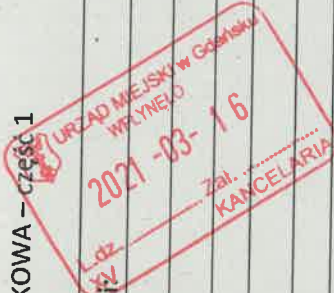 KOWA – część 1
URZĄD MIEJSKI w Gdańsku
WPŁYNĘŁO
2021 -03- 16
L.dz. .......... Zał. ..........
KANCELARIA
XV